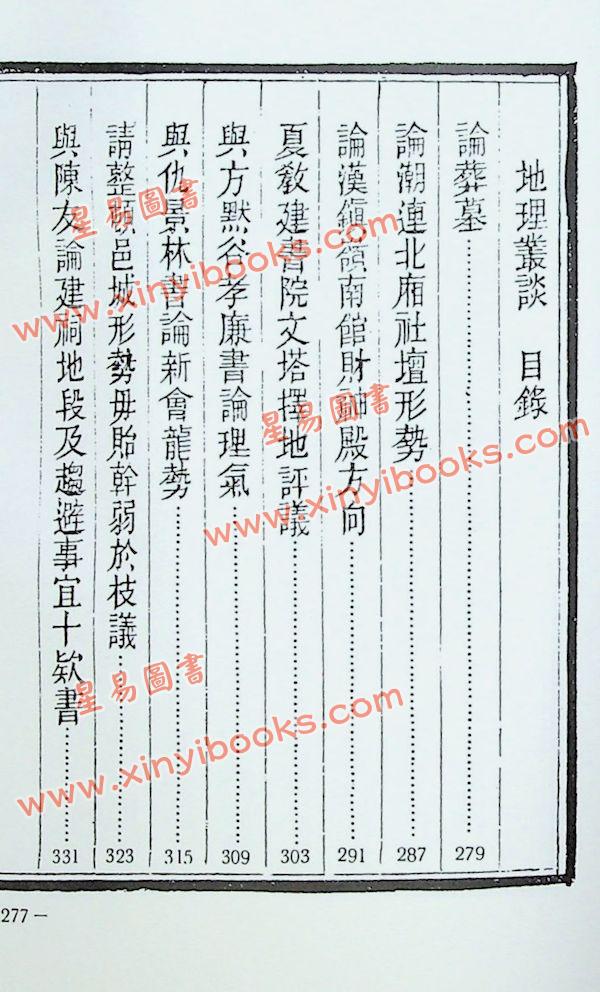 地理叢談 目錄
論葬墓……279
論潮連北廂社壇形勢……287
論漢鎮嶺南館財神殿方向……291
夏教建書院文塔擇地評議……303
與方默谷孝廉書論理氣……309
與仇景林書論新會龍勢……315
請整頓邑城形勢毋貽幹弱於枝議……323
與陳友論建祠地段及趨避事宜十欵書……331
277 –
星易圖書
www.xinyibooks.com
星易圖書
www.xinyibooks.com
星易圖書
www.xinyibooks.com